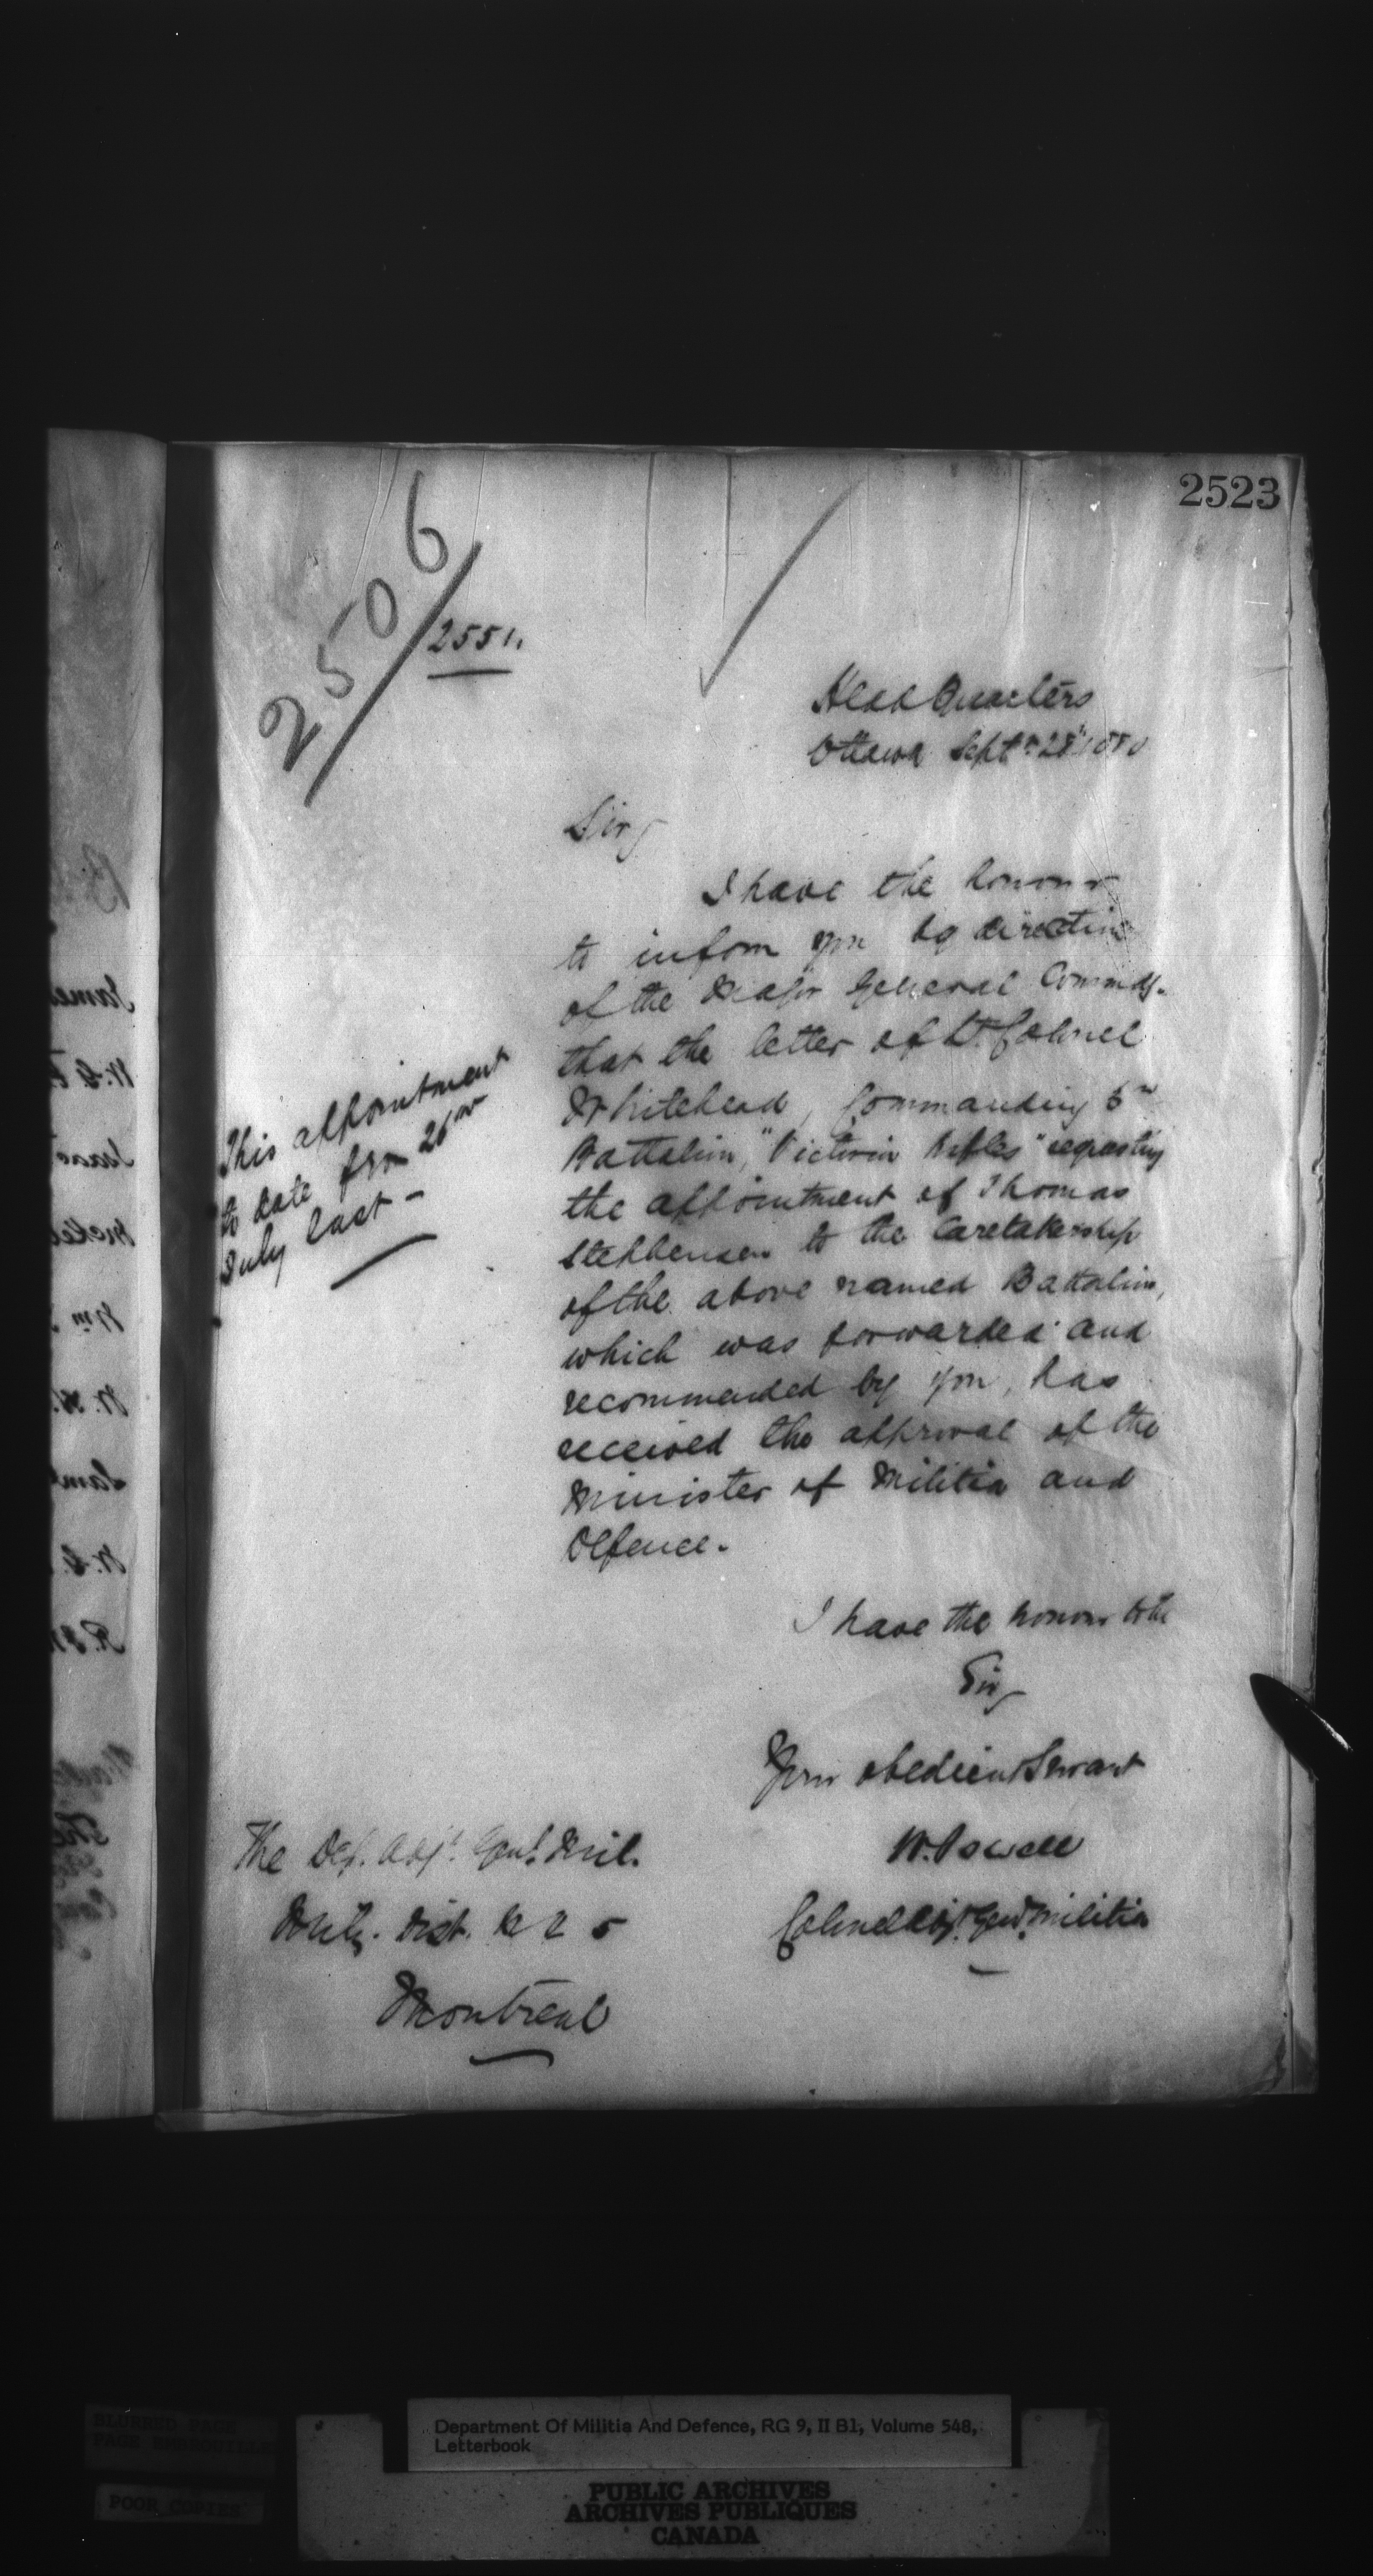 2523
2506
2551.
Head Quarters
Ottawa Sept. 28th 1880
Sir,
I have the honour
to inform you by direction
of the Major General Commdg.
that the letter of Lt. Colonel
Whitehead, Commanding
Battalion, "Victoria Rifles" requesting
the appointment of Thomas
Stephenson to the Caretakership
of the above named Battalion,
which was forwarded and
recommended by you, has
received the approval of the
Minister of Militia and
Defence.
This appointment
to date from 26th
July last -
I have the honour to be
Sir,
Your obedient Servant
W. Powell
Colonel Adjt. Genl. Militia
The Dep. Adjt. Genl. Mil.
Mily. Dist. No 5
Montreal
Department Of Militia And Defence, RG 9, II B1, Volume 548,
Letterbook
BLURRED PAGE
PAGE BROUILLEE
POOR COPIES
PUBLIC ARCHIVES
ARCHIVES PUBLIQUES
CANADA